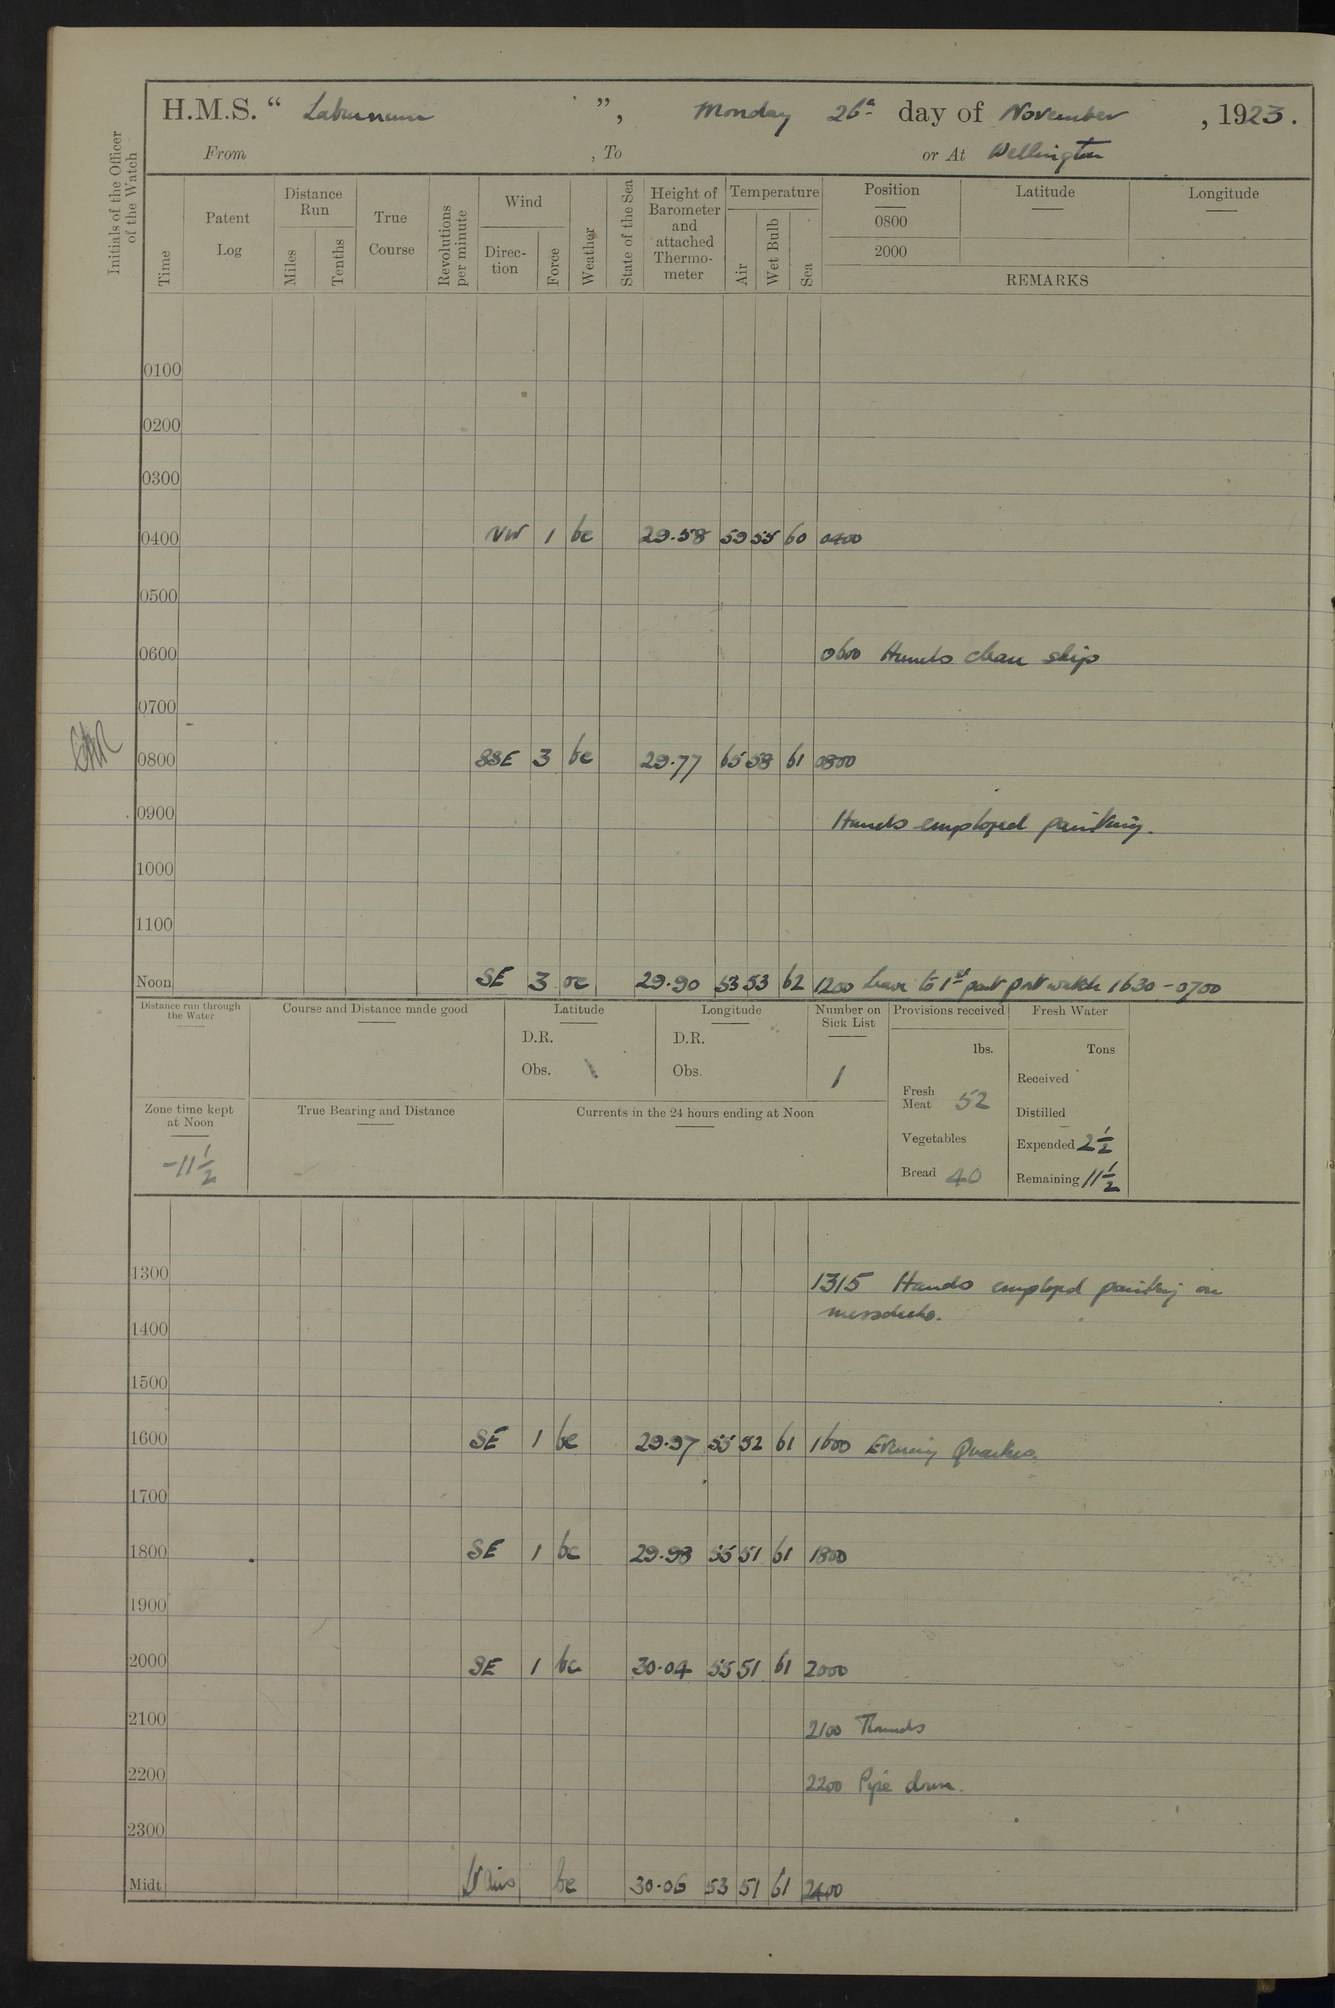 H.M.S. “ Laburnum ”, Monday 26th day of November , 1923.
From , To or At Wellington
Initials of the Officer of the Watch
Time
Patent Log
Distance Run
Miles
Tenths
True Course
Revolutions per minute
Wind
Direc- tion
Force
Weather
State of the Sea
Height of Barometer and attached Thermo- meter
Temperature
Air
Wet Bulb
Sea
Position
Latitude
Longitude
0800
2000
REMARKS
0100
0200
0300
0400 NW 1 bc 29.58 59 55 60 0400
0500
0600 0600 Hands clean ship
0700
0800 SSE 3 bc 29.77 65 58 61 0800
0900 Hands employed painting.
1000
1100
Noon SE 3 oc 29.90 53 53 62 1200 Leave to 1st part port watch 1630 - 0700
Distance run through the Water
Course and Distance made good
Latitude
D.R.
Obs.
Longitude
D.R.
Obs.
Number on Sick List
1
Provisions received
lbs.
Fresh Meat 52
Vegetables
Bread 40
Fresh Water
Tons
Received
Distilled
Expended 2 1/2
Remaining 11 1/2
Zone time kept at Noon
-11 1/2
True Bearing and Distance
Currents in the 24 hours ending at Noon
1300 1315 Hands employed painting on
messdecks.
1400
1500
1600 SE 1 bc 29.97 55 52 61 1600 Evening Quarters.
1700
1800 SE 1 bc 29.98 55 51 61 1800
1900
2000 SE 1 bc 30.04 55 51 61 2000
2100 2100 Rounds
2200 2200 Pipe down.
2300
Midt bc 30.06 53 51 61 2400